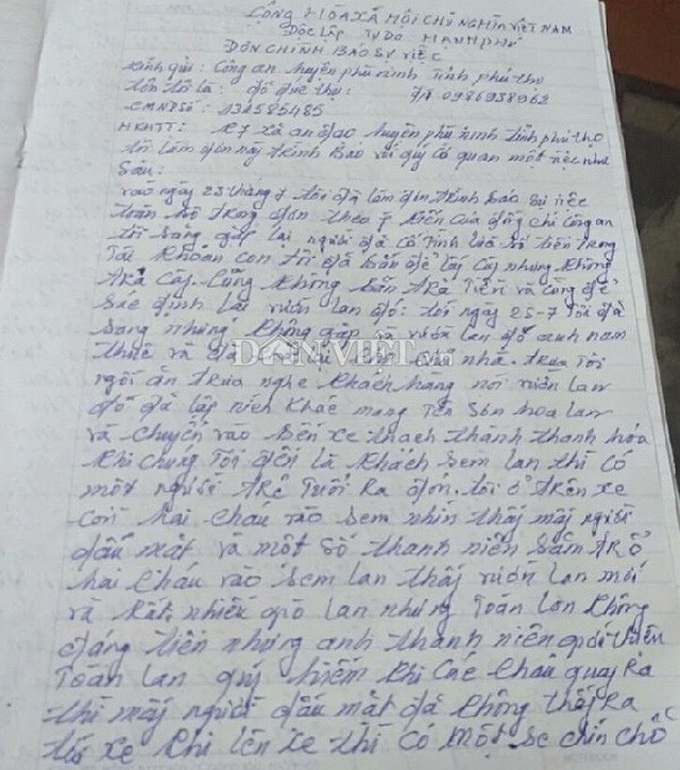 CỘNG HÒA XÃ HỘI CHỦ NGHĨA VIỆT NAM
Độc Lập Tự Do HẠNH PHÚ
ĐƠN CHÌNH BÁO SỰ VIỆC
kính gửi : Công an huyện phù ninh Tỉnh phú thọ
tên tôi là : đỗ thụ : 0986938962
CMND Số : 131585485
HKHTT : K7 xã an đạo huyện phù ninh tỉnh phú thọ
tôi làm đơn này trình Báo với quý cơ quan một việc như
Sau :
vào ngày 23 tháng 7 tôi đã làm đơn trình báo sự việc
toàn bộ trong đơn theo ý kiến của đồng chí công an
tôi sang gặp lại người đã cố tình lừa số tiền trong
Tài khoản con tôi đã bán để lấy cây nhưng không
trả cây. Cũng không trả Tiền và cũng để
sác định lại vườn lan đó: tới ngày 25-7 Tôi đã
sang nhưng không gặp và vườn lan đó anh nam
thuê và đã lại nhà. trưa Tôi
DÂN VIỆT.vn
ngồi ăn trưa nghe khách hàng nói vườn lan
đó đã lập ních khác mang tên Sơn hoa lan
và chuyển vào bến xe thạch thành thanh hóa
khi chúng Tôi đến là khách sem lan thì có
một người trẻ Tuổi Ra đón. tôi ở trên xe
còn hai cháu vào sem nhìn thấy mấy người
dấu mặt và một số thanh niên săm trổ
hai cháu vào sem lan thấy vườn lan mới
và Rất nhiều giò lan nhưng toàn lan không
đáng tiền nhưng anh thanh niên giới thiệu
Toàn lan quý hiếm khi các cháu quay Ra
thì mấy người dấu mặt đã không thấy Ra
tới xe khi lên xe thì có một se chín chỗ